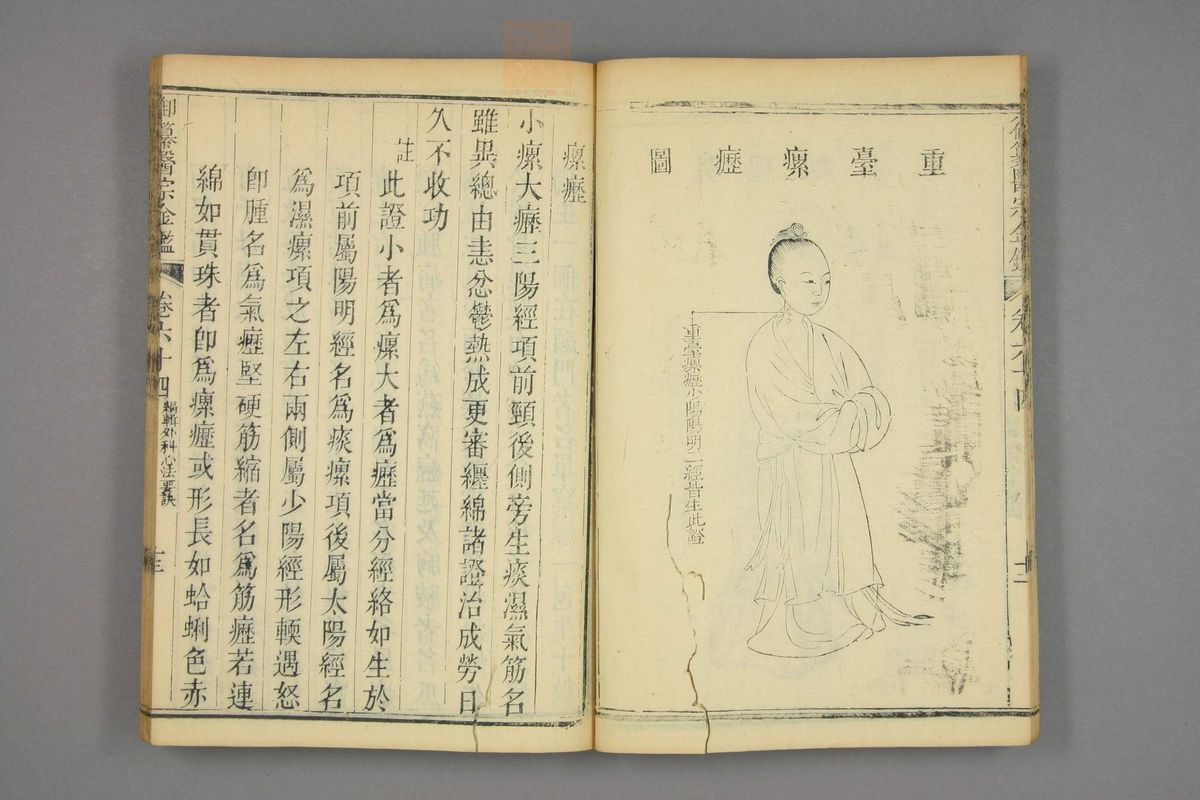 重臺瘰癧圖
重臺瘰癧少陽陽明二經皆生此證
瘰癧
小瘰大癧三陽經項前頸後側旁生痰濕氣筋名
雖異總由恚忿鬱熱成更審纒綿諸證治成勞日
久不收功
註此證小者爲瘰大者爲癧當分經絡如生於
項前屬陽明經名爲痰瘰項後屬太陽經名
爲濕瘰項之左右兩側屬少陽經形輭遇怒
卽腫名爲氣癧堅硬筋縮者名爲筋癧若連
綿如貫珠者卽爲瘰癧或形長如蛤蜊色赤
御纂醫宗金鑑 卷六十四 編輯外科心法要訣 十三